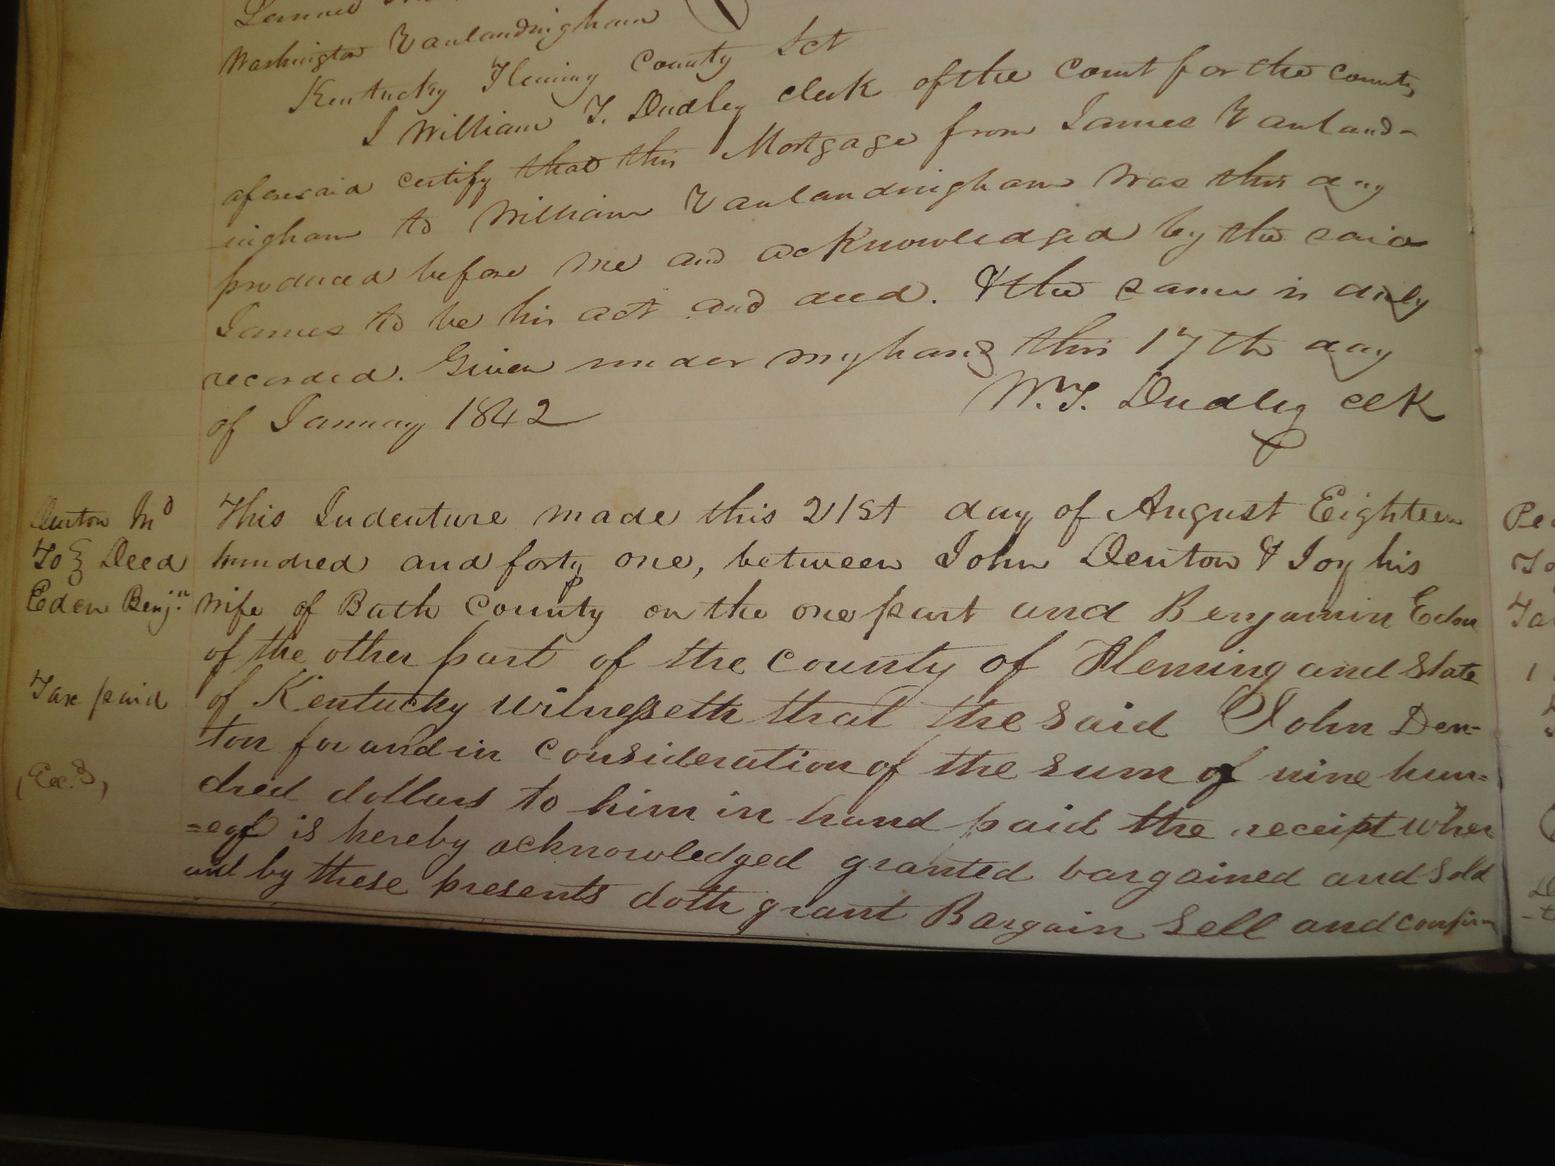 Washington Vanlandingham
Kentucky Fleming County Sct
I William T. Dudley clerk of the court for the county
aforesaid certify that this Mortgage from James Vanland-
ingham to William Vanlandingham was this day
produced before me and acknowledged by the said
James to be his act and deed. & the same is duly
recorded. Given under my hand this 17th day
of January 1842
W.T. Dudley clk
Denton Jno
To } Deed
Eden Benjn
Tax paid
(Exd,)
This Indenture made this 21st day of August Eighteen
hundred and forty one, between John Denton & Joy his
wife of Bath County on the one part and Benjamin Eden
of the other part of the county of Fleming and State
of Kentucky witnesseth that the said John Den-
ton for and in consideration of the sum of nine hun=
dred dollars to him in hand paid the receipt wher
=eof is hereby acknowledged granted bargained and sold
and by these presents doth grant Bargain Sell and confirm